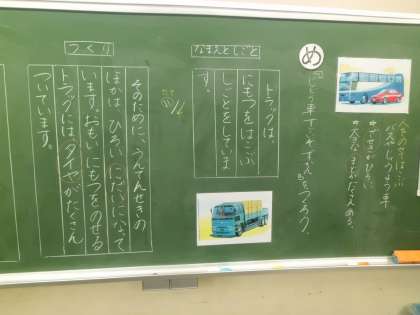 人をのせてはこぶ
バスやじょうよう車
ざせきがひろい
大きなまどがたくさんある。
め
じどう車
をつくろう。
なまえとしごと
トラックは、
にもつをはこぶ
しごとをしていま
す。
つくり
そのために、うんてんせきの
ほかは ひろいにだいになって
います。おもいにもつをのせる
トラックには、タイヤがたくさん
ついています。